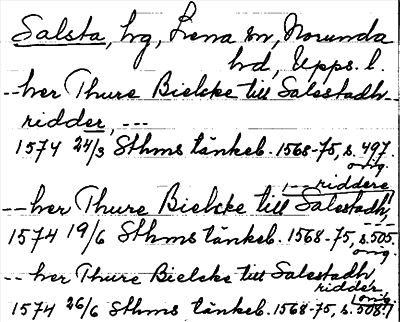 Salsta, hg, Lena sn, Norunda
hd, Upps. l.
--her Thure Bielcke till Salestadh--
ridder, ---
1574 24/3 Sthms tänkeb. 1568-75, s. 497.
orig.
---riddere
--her Thure Bielcke till Salestadh, ---
1574 19/6 Sthms tänkeb. 1568-75, s. 505.
orig.
--her Thure Bielcke till Salestadh
ridder,
1574 26/6 Sthms tänkeb. 1568-75, s. 508. orig.